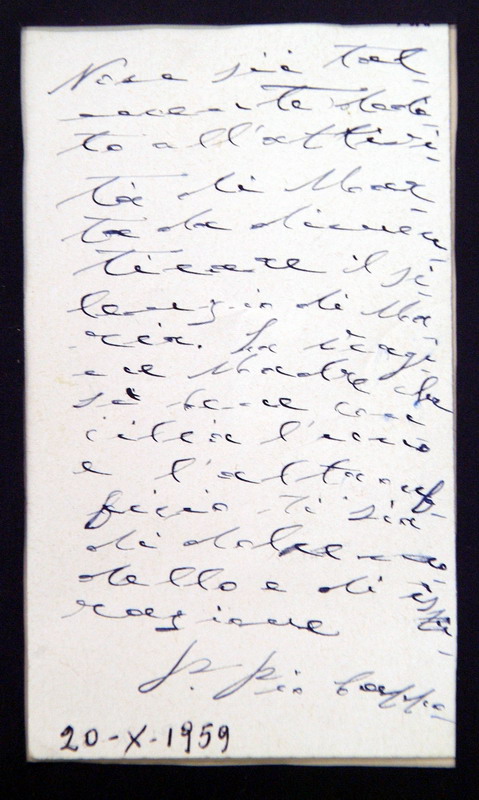 Non sii tal-
mente dedi-
to all'attivi-
tà di Mar-
ta da dimen-
ticare il si-
lenzio di Ma-
ria. La Vergi-
ne Madre che
sì bene con-
cilia l'uno
e l'altro uf-
ficio ti sia
di dolce mo-
dello e di ispi-
razione
P. Pio Capp.
20-X-1959